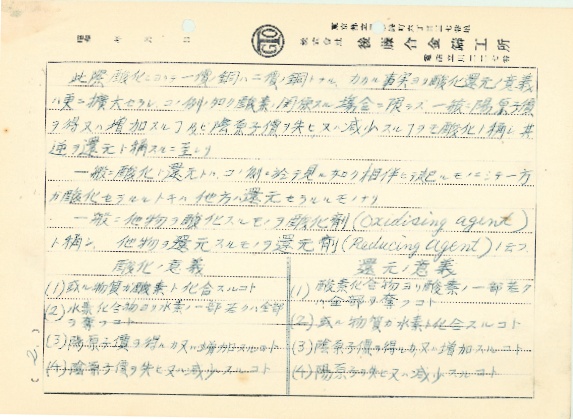 株式会社 後藤合金鋳工所
此際酸化ニヨリテ一價ノ銅ハ二價ノ銅トナル、カカル事実ヨリ酸化還元ノ意義
ハ更ニ擴大セラレ、コノ例ノ如ク酸素ノ関係スル場合ニ限ラズ一般ニ陽原子價
ヲ得又ハ増加スルヿ及ビ陰原子價ヲ失ヒ又ハ減少スルヿヲモ酸化ト稱シ其
逆ヲ還元ト稱スルニ至レリ
一般ニ酸化ト還元トハコノ例ニ於テ見ル如ク相伴ニテ起ルモノニシテ一方
ガ酸化セラルルトキハ他方ハ還元セラルルモノナリ
一般ニ他物ヲ酸化スルモノヲ酸化剤(Oxidising agent)
ト稱シ、他物ヲ還元スルモノヲ還元剤(Reducing agent)ト云フ
酸化ノ意義
(1)或ル物質ガ酸素ト化合スルコト
(2)水素化合物ヨリ水素ノ一部若クハ全部
ヲ奪フコト
(3)陽原子價ヲ得ルカ又ハ増加スルコト
(4)陰原子價ヲ失ヒ又ハ減少スルコト
還元ノ意義
(1)酸素化合物ヨリ酸素ノ一部若ク
ハ全部ヲ奪フコト
(2)或ル物質ガ水素ト化合スルコト
(3)陰原子價ヲ得ルカ又ハ増加スルコト
(4)陽原子價ヲ失ヒ又ハ減少スルコト
(2.)